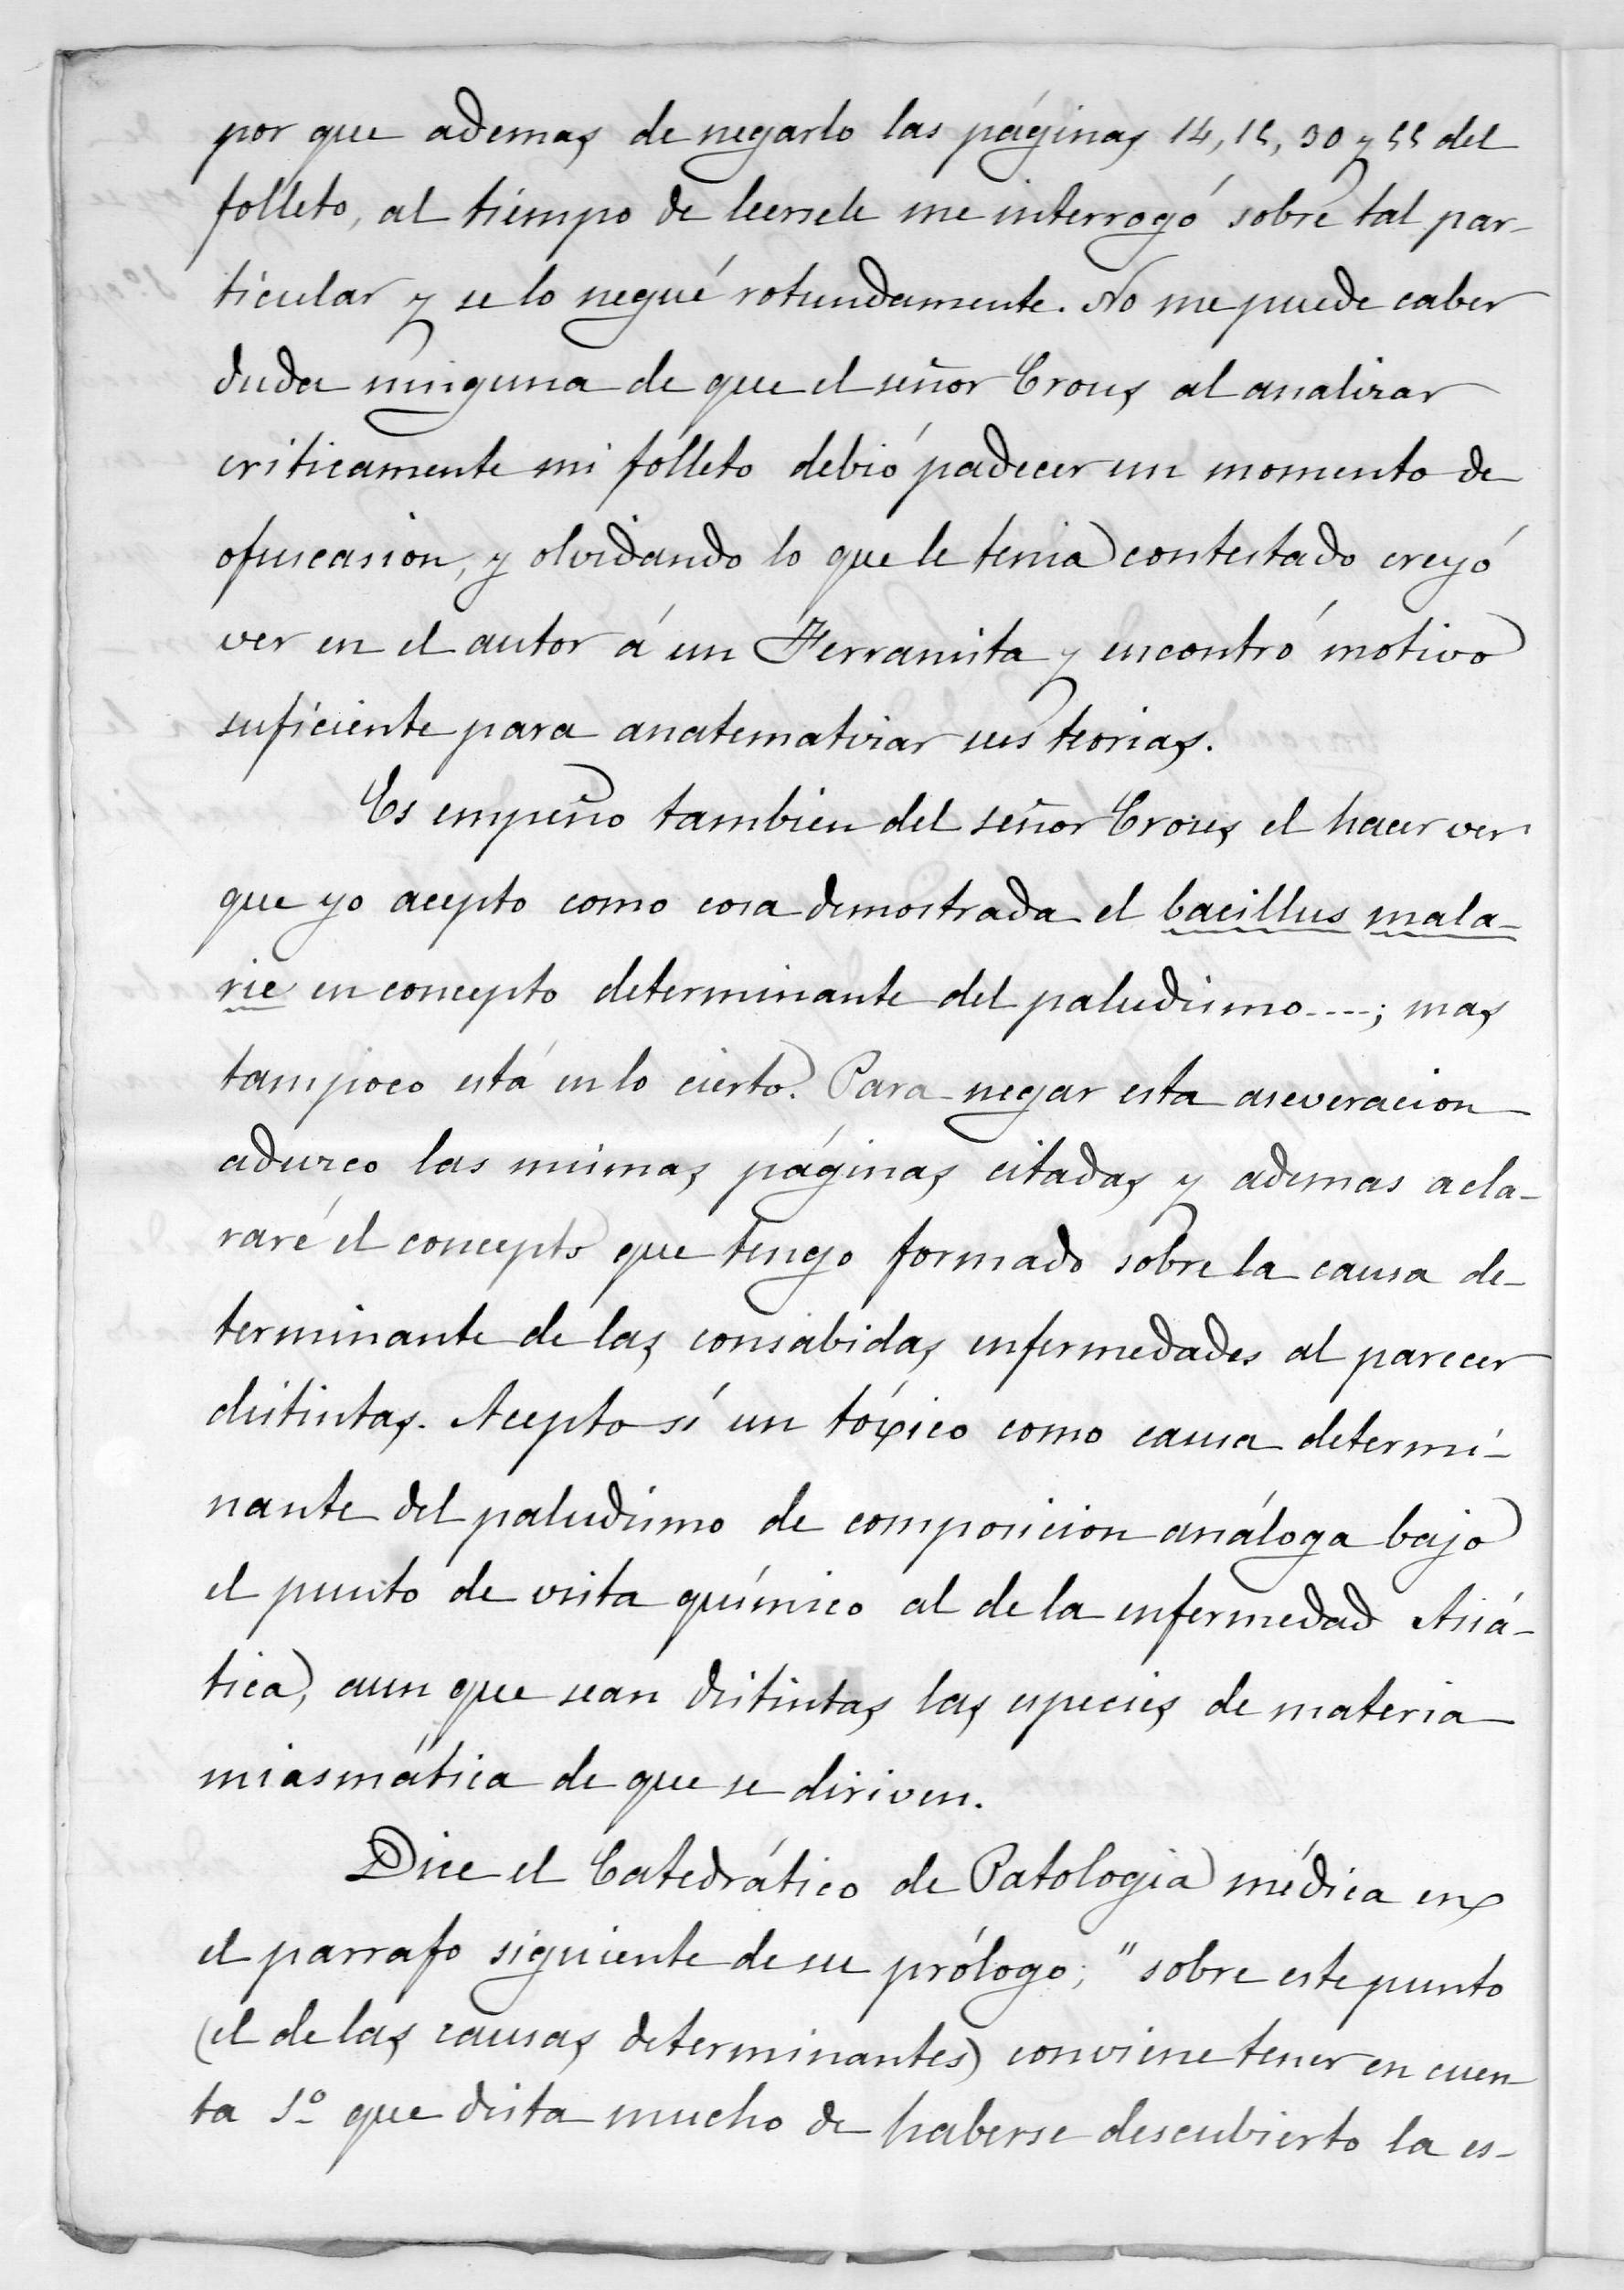 por que ademas de negarlo las páginas 14, 15, 30 y 55 del
folleto, al tiempo de leersele me interrogó sobre tal par-
ticular y se lo negué rotundamente. No me puede caber
duda ninguna de que el señor Crous al analizar
criticamente mi folleto debió padecer un momento de
ofuscasion, y olvidando lo que le tenia contestado creyó
ver en el autor á un Ferranista y encontró motivo
suficiente para anatematizar sus teorias.
Es empeño tambien del señor Crous el hacer ver
que yo acepto como cosa demostrada el bacillus mala-
rie en concepto determinante del paludismo....; mas
tampoco está en lo cierto. Para negar esta aseveracion
aduzco las mismas páginas citadas y ademas acla-
raré el concepto que tengo formado sobre la causa de-
terminante de las consabidas enfermedades al parecer
distintas. Acepto sí un tóxico como causa determi-
nante del paludismo de composicion análoga bajo
el punto de vista químico al de la enfermedad Asiá-
tica, aun que sean distintas las especies de materia
miasmática de que se diriven.
Dice el Catedrático de Patologia médica en
el parrafo siguiente de su prólogo; "sobre este punto
(el de las causas determinantes) conviene tener en cuen
ta 1º que dista mucho de haberse descubierto la es-